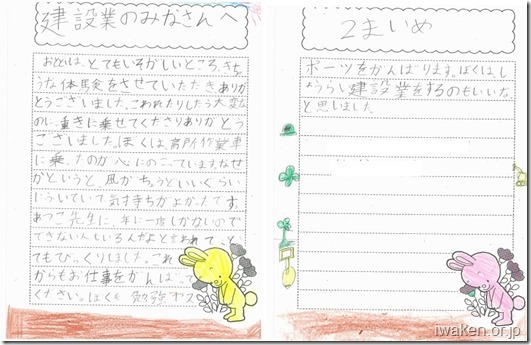 建設業のみなさんへ
おとといは、とてもいそがしいところ、きち
ょうな体験をさせていただきありが
とうございました。こわれたりしたら大変な
のに、重きに乗せてくださりありがとう
ございました。ぼくは高所作業車
に乗ったのが心にのこっています。なぜ
かというと、風がちょうどいいくらい
にふいていて気持ちがよかったです。
あつこ先生に、年に一回しかないので
できない人もいるんだよと言われて、と
てもびっくりしました。これ
からもお仕事をがんばって
ください。ぼくも勉強やス
2まいめ
ポーツをがんばります。ぼくはし
ょうらい建設業をするのもいいな
と思いました。
iwaken.or.jp